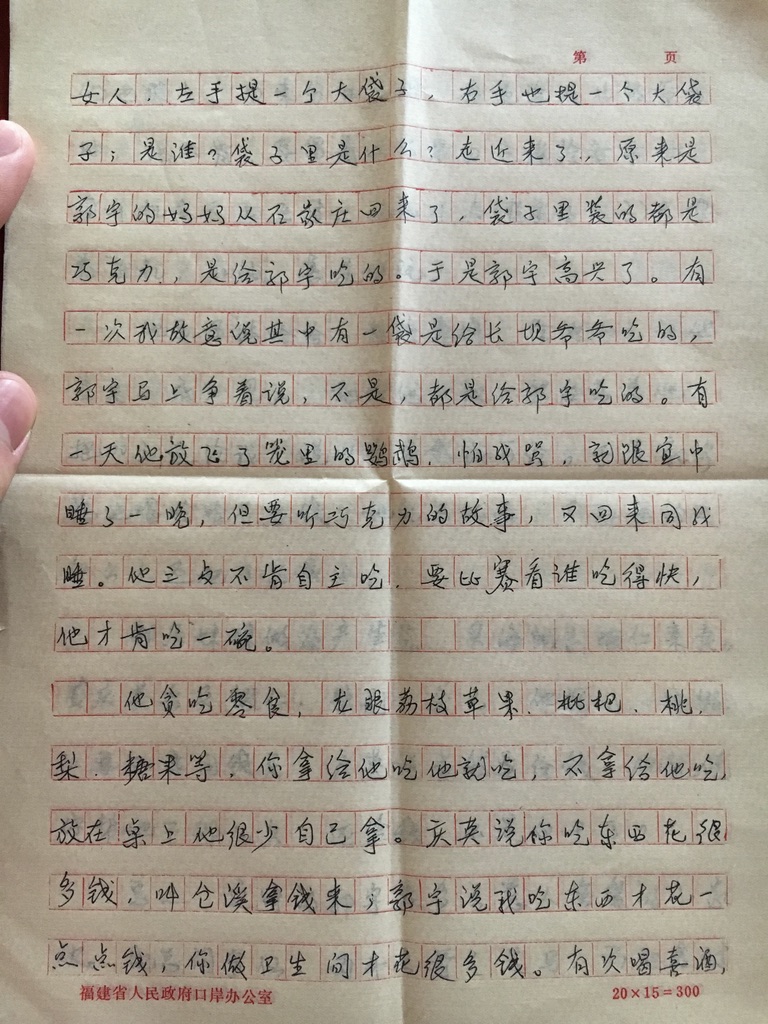 第 页
女人，左手提一个大袋子，右手也提一个大袋
子；是谁？袋子里是什么？走近来了，原来是
郭宇的妈妈从石家庄回来了，袋子里装的都是
巧克力，是给郭宇吃的。于是郭宇高兴了。有
一次我故意说其中有一袋是给长坝爷爷吃的，
郭宇马上争着说，不是，都是给郭宇吃的。有
一天他放飞了笼里的鹦鹉，怕我骂，就跟宜中
睡了一晚，但要听巧克力的故事，又回来同我
睡。他三歺不肯自主吃，要比赛看谁吃得快，
他才肯吃一碗。
他贪吃零食，龙眼荔枝苹果、枇杷、桃、
梨、糖果等，你拿给他吃他就吃，不拿给他吃，
放在桌上他很少自己拿。庆英说你吃东西花很
多钱，叫仓溪拿钱来；郭宇说我吃东西才花一
点点钱，你做卫生间才花很多钱。有次喝喜酒，
福建省人民政府口岸办公室 20×15=300